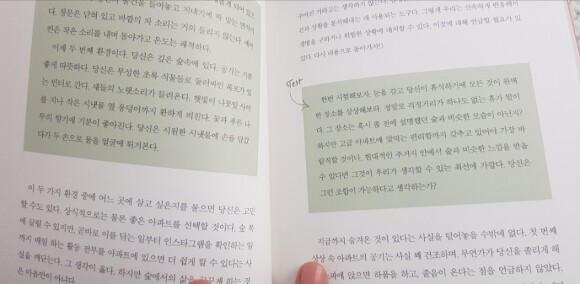 다. 창문은 닫혀 있고 바깥의 차 소리는 거의 들리지 않는다. 에어
컨은 작은 소리를 내며 돌아가고 온도는 쾌적하다.
이제 두 번째 환경이다. 당신은 깊은 숲속에 있다. 공기는 기분
좋게 따뜻하다. 당신은 무성한 초록 식물들로 둘러싸인 폭포가 있
는 빈터로 간다. 새들의 노랫소리가 들려온다. 햇빛이 나뭇잎 사이
를 지나 작은 시냇물 옆 웅덩이까지 환하게 비친다. 꽃과 푸른 나
무의 향기에 기분이 좋아진다. 당신은 시원한 시냇물에 손을 담갔
다가 두 손으로 물을 얼굴에 튀겨본다.
이 두 가지 환경 중에 어느 곳에 살고 싶은지를 물으면 당신은 고민
할 수도 있다. 상식적으로는 물론 좋은 아파트를 선택할 것이다. 숲 속
에 끌릴 수도 있지만, 곧바로 이를 닦는 일부터 인스타그램을 확인하는 일
까지 매일 하는 활동 전부를 아파트에 있으면 더 쉽게 할 수 있다는 사
실을 깨닫는다. 그 생각이 옳다. 하지만 숲에서의 삶을
은 마음만이 아니다.
긴과 상황을 통치해내는 데 사용되는 도구다. 그렇게 우리는 신속하게 반응해서
있다. 다시 내용으로 돌아가자!)
Test
한번 시험해보자. 눈을 감고 당신이 휴식하기에 모든 것이 완벽
한 장소를 상상해보라. 정말로 걱정거리가 하나도 없는 휴가 말이
다. 그 장소는 혹시 좀 전에 설명했던 숲과 비슷한 모습이 아닌지?
하지만 고급 아파트에 맞먹는 편리함까지 갖추고 있어야 가장 바
람직할 것이다. 현대적인 주거지 안에서 숲과 비슷한 느낌을 받을
수 있다면 그것이 우리가 생각할 수 있는 최선에 가깝다. 당신은
그런 조합이 가능하다고 생각하는가?
지금까지 숨겨온 것이 있다는 사실을 털어놓을 수밖에 없다. 첫 번째
상상 속 아파트의 공기는 사실 꽤 건조하며, 무언가가 당신을 졸리게 해
파에 앉으면 하품을 하고, 졸음이 온다는 점을 언급하지 않았다.